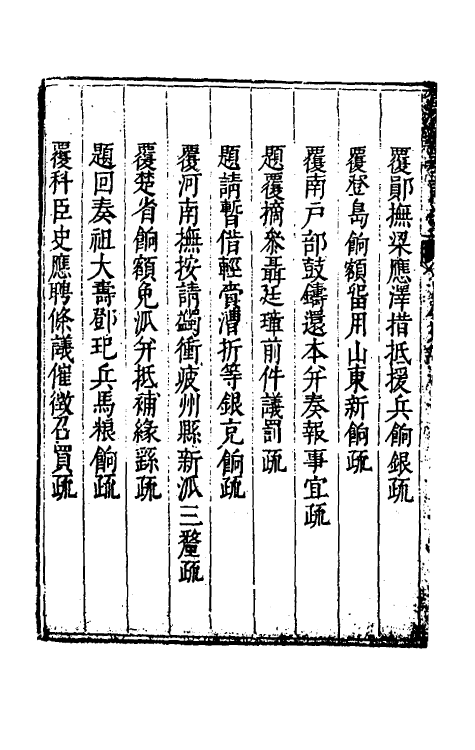 覆鄖撫梁應澤措抵援兵餉銀疏
覆登島餉額留用山東新餉疏
覆南户部鼓鑄還本并奏報事宜疏
題覆摘叅聶廷璋前件議罰疏
題請暫借輕賫漕折等銀充餉疏
覆河南撫按請蠲衝疲州縣新派三釐疏
覆楚省餉額免派并抵補緣繇疏
題回奏祖大壽鄧玘兵馬粮餉疏
覆科臣史應聘條議催徵召買疏